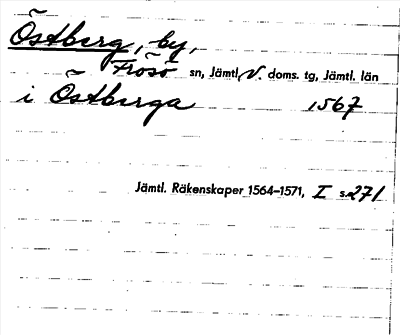 Östberg, by,
Frösö sn, Jämtl. V. doms. tg, Jämtl. län
i Östberga 1567
Jämtl. Räkenskaper 1564-1571, I s. 271